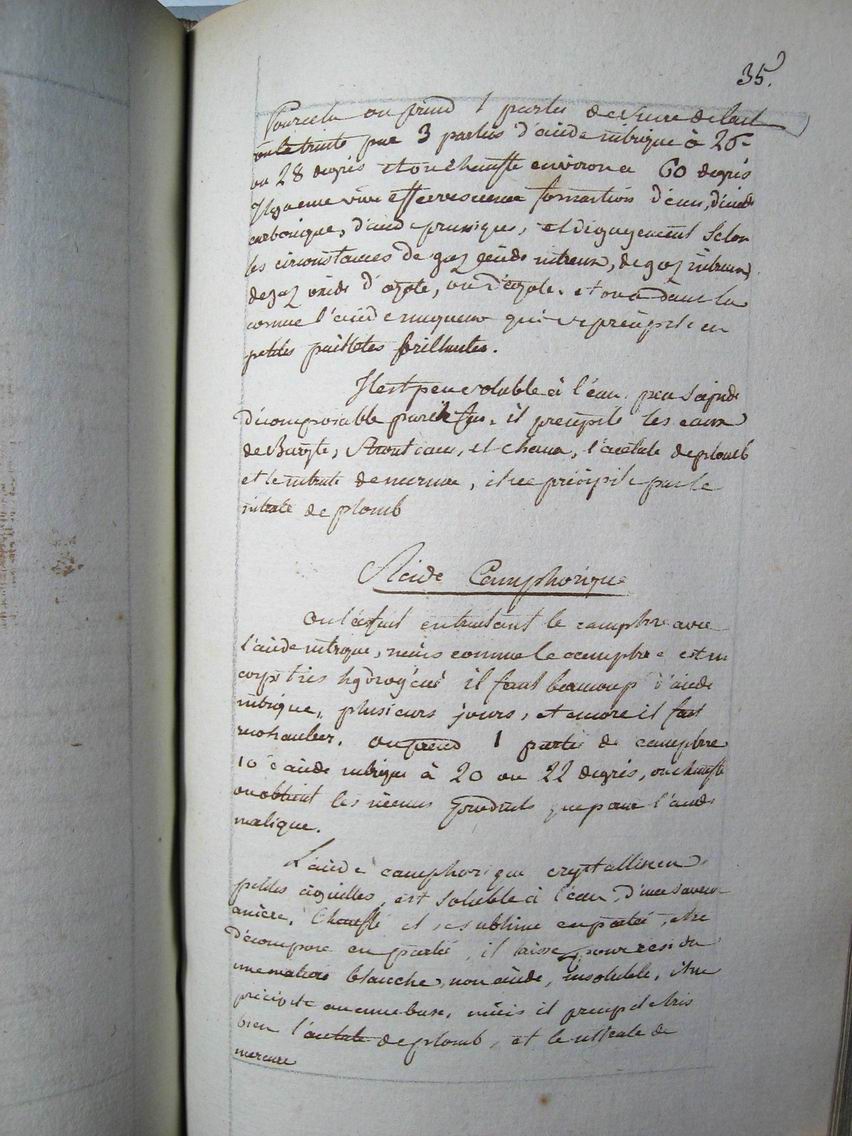 35.
Pour cela on prend 1 partie de sucre de lait
on le traite par 3 parties d'acide nitrique à 26
ou 28 degrés et on chauffe environ a 60 degrés
Il y a une vive effervescence formation d'eau, d'acide
carbonique, d'acide prussique, et dégagement selon
les circonstances de gaz acide nitreux, de gaz nitreux
de gaz oxide d'azote, ou d'azote. et on a dans la
cornue l'acide muqueux qui se précipite en
petites paillettes brillantes.
Il est peu soluble à l'eau, peu sapide
décomposable par le feu. il précipite les eaux
de Baryte, Strontiane, et chaux, l'acétate de plomb
et le nitrate de mercure, il se précipite par le
nitrate de plomb
Acide Camphorique
On le fait en traitant le camphre avec
l'acide nitrique, mais comme le camphre est un
corps très hydrogéné il faut beaucoup d'acide
nitrique, plusieurs jours, et encore il faut
rechauffer. on prend 1 partie de camphre
10 d'acide nitrique à 20 ou 22 degrés, on chauffe
on obtient les mêmes produits que pour l'acide
malique.
L'acide camphorique crystallise en
petites aiguilles, est soluble à l'eau, d'une saveur
amère. Chauffé il se sublime en partie, et se
décompose en partie, il laisse pour residu
une matière blanche, non acide, insoluble, il ne
précipite aucune base, mais il précipite très
bien l'acétate de plomb, et le nitrate de
mercure